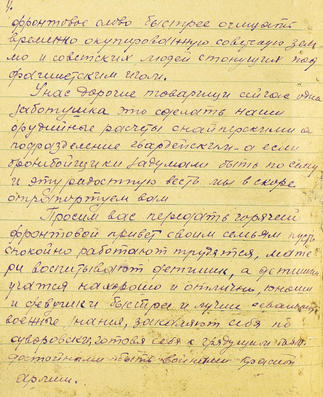 4.
фронтовое слово быстрее очищать
временно окупированную советскую зем
лю и советских людей стонущих под
фашистским игом.
У нас дорогие товарищи сейчас одна
заботушка это сделать наши
орудийные расчеты снайперскими а
подразделение гвардейским а если
бронебойщики задумали быть по сему
и эту радостную весть мы в скоре
отрапортуем вам
Просим вас передать горячий
фронтовой привет своим семьям пусть
спокойно работают трудятся, мате
ри воспитывают детишек, а детишки
учатся на хорошо и отлично, юноши
и девушки быстрее и лучше
военные знания, закаляют себя по
суворовски, готовя себя к грядущим
достойными быть воинами красной
армии.